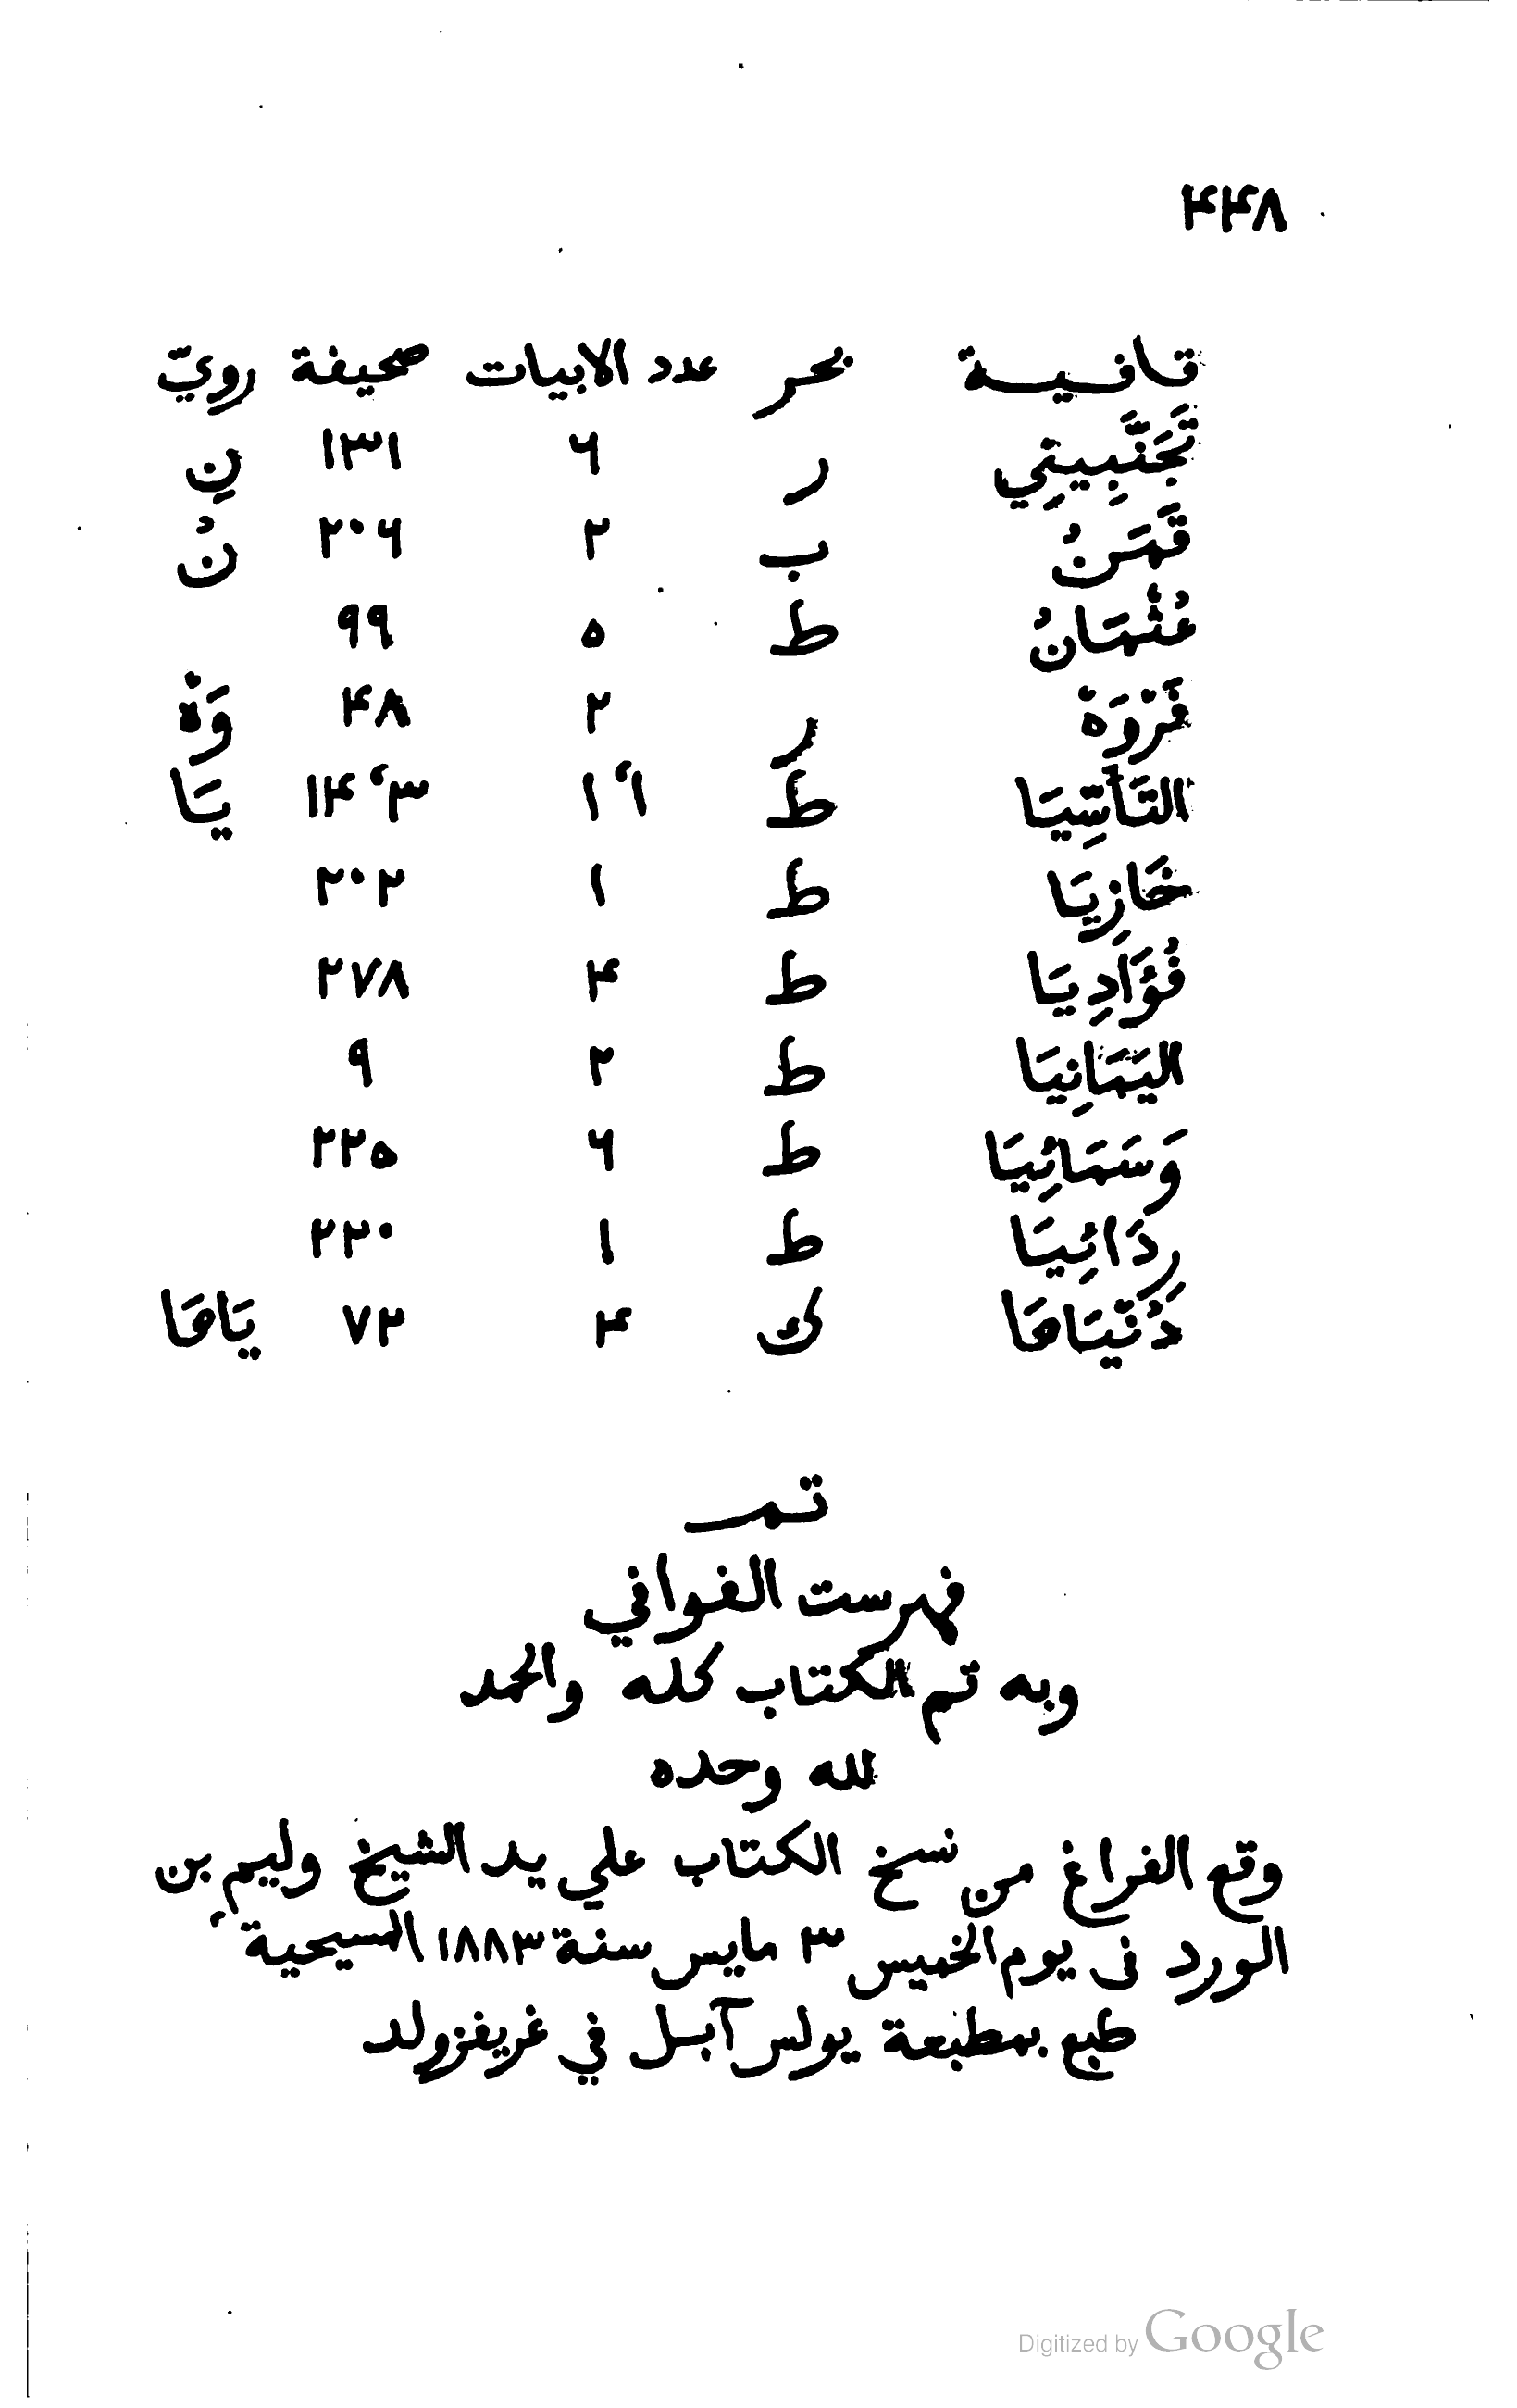 ۴۴۸
قافية بحر عدد الابيات صحيفة رويّ
تَجَنَّبِينِي ر ٦ ١٣١ نِ
قَمَنُ ب ٢ ٢٠٦ نُ
عُثْمَانُ ط ٥ ٩٩
فَرْوَهْ ر ٢ ۴٨ وَهْ
التَأَسِّيَا ط ١،١ ١۴،٣ يَا
خَازِيَا ط ١ ٢٠٢
فُؤَادِيَا ط ۴ ٢٧٨
اليَمَانِيَا ط ٢ ٩
وَسَمَائِيَا ط ٦ ٢٢٥
رِدَائِيَا ط ١ ٢٣٠
دُنْيَاهَا ك ۴ ٧٢ يَاهَا
تم
فهرست القوافي
وبه تم الكتاب كله والحمد
لله وحده
وقع الفراغ من نسخ الكتاب علي يد الشيخ وليم بن
الورد فى يوم الخميس ٣ مايس سنة ١٨٨٣ المسيحية،
طبع بمطبعة يولس آبل في غريفزولد
Digitized by Google